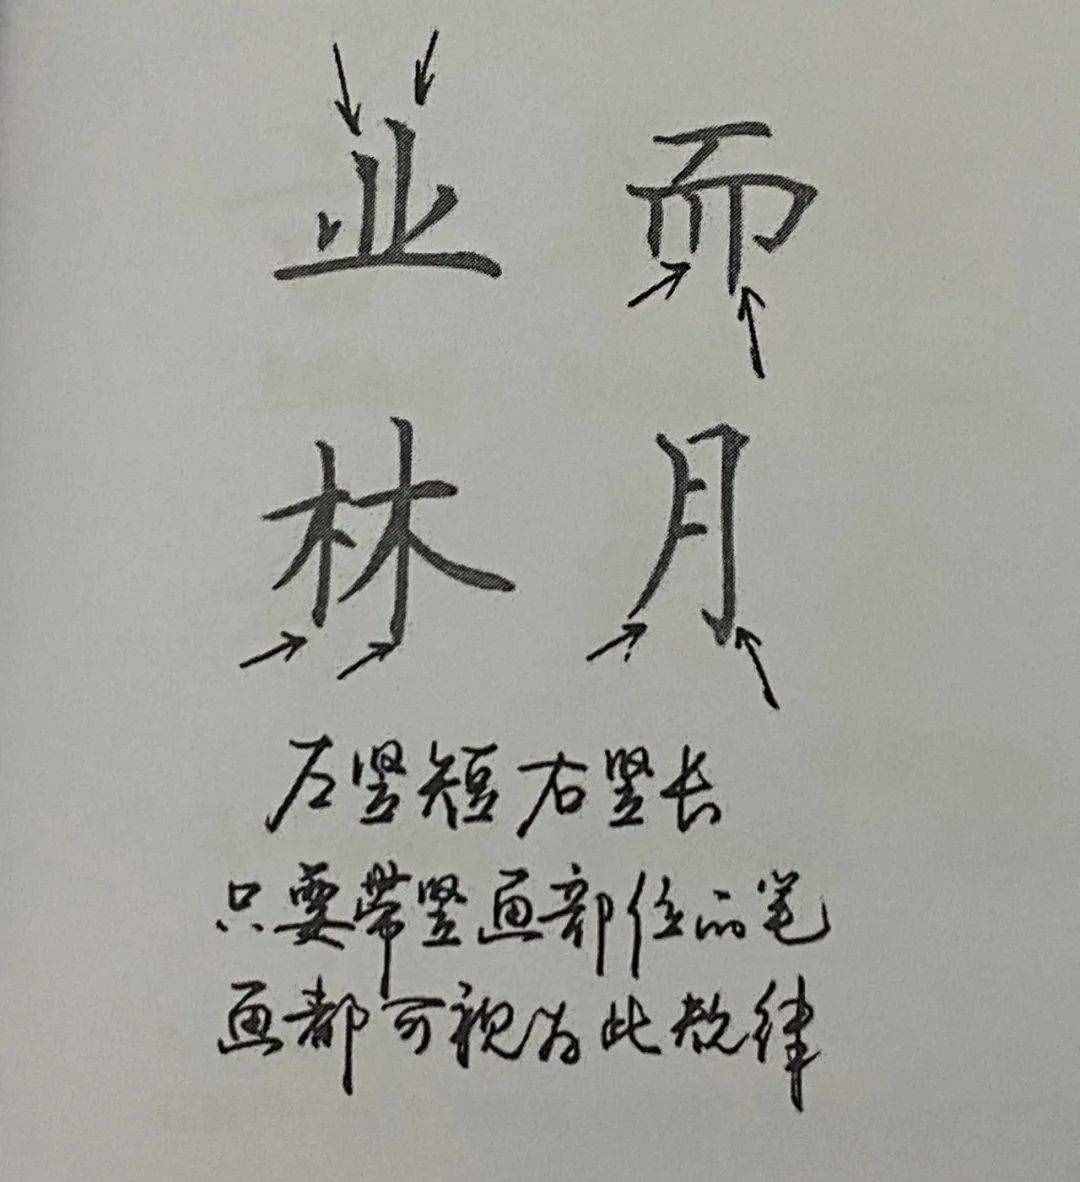 业 而
林 月
左竖短右竖长
只要带竖画部位的笔
画都可视为此规律